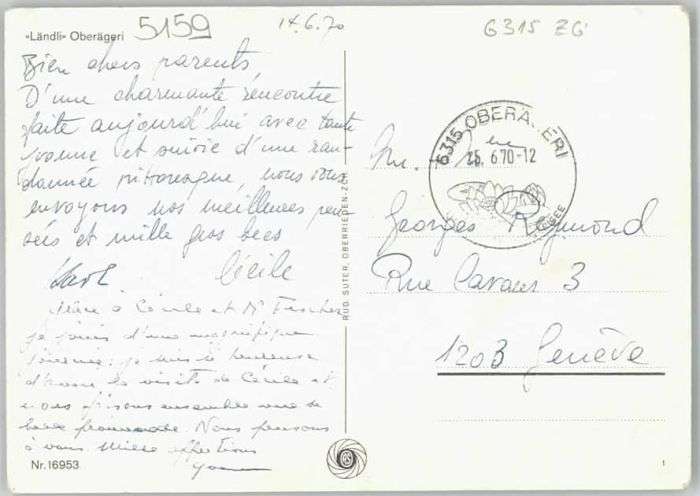 «Ländli» Oberägeri
5159
14.6.70
6315 ZG
Bien chers parents
D'une charmante rencontre
faite aujourd'hui avec tante
Yvonne et suivie d'une ran-
donnée pittoresque, nous vous
envoyons nos meilleures pen-
sées et mille gros becs
Cécile
à Cécile et Mr Fischer
je jouis d'une magnifique
je suis si heureuse
d'avoir la visite de Cécile et
nous faisons ensemble une
belle promenade. Nous pensons
à vous. Mille affections
Yvonne
Nr. 16953
RUD. SUTER, OBERRIEDEN-ZCH
6315 OBERÄGERI
15.6.70-12
Georges Reymond
Rue Cavour 3
1203 Genève
1